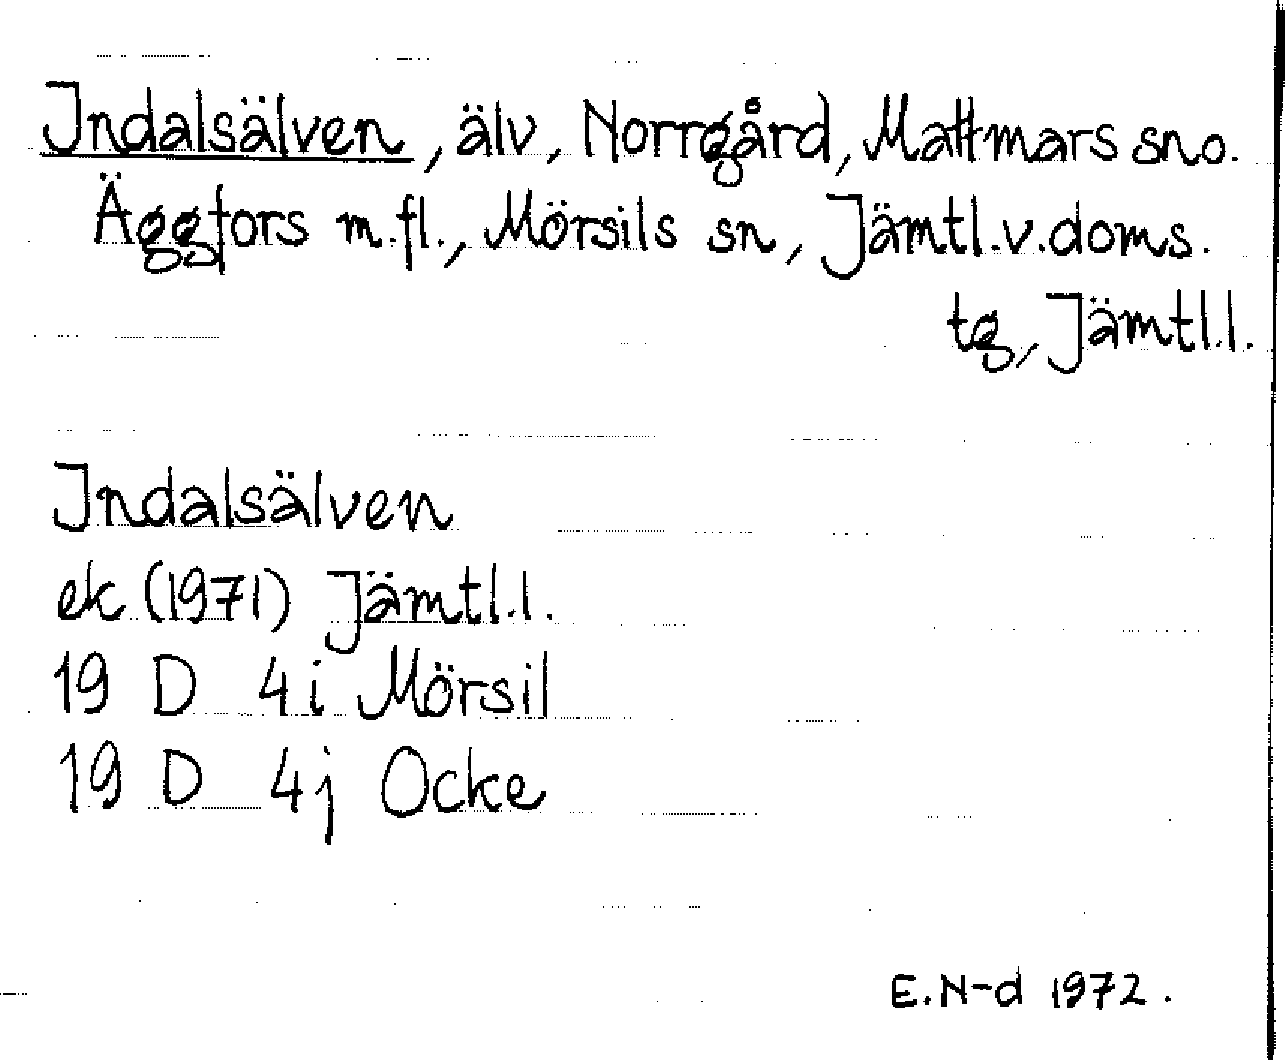 Indalsälven, älv, Norrgård, Mattmars sn o.
Äggfors m.fl., Mörsils sn, Jämtl.v.doms.
tg, Jämtl.l.
Indalsälven
ek (1971) Jämtl.l.
19 D 4i Mörsil
19 D 4j Ocke
E.N-d 1972.